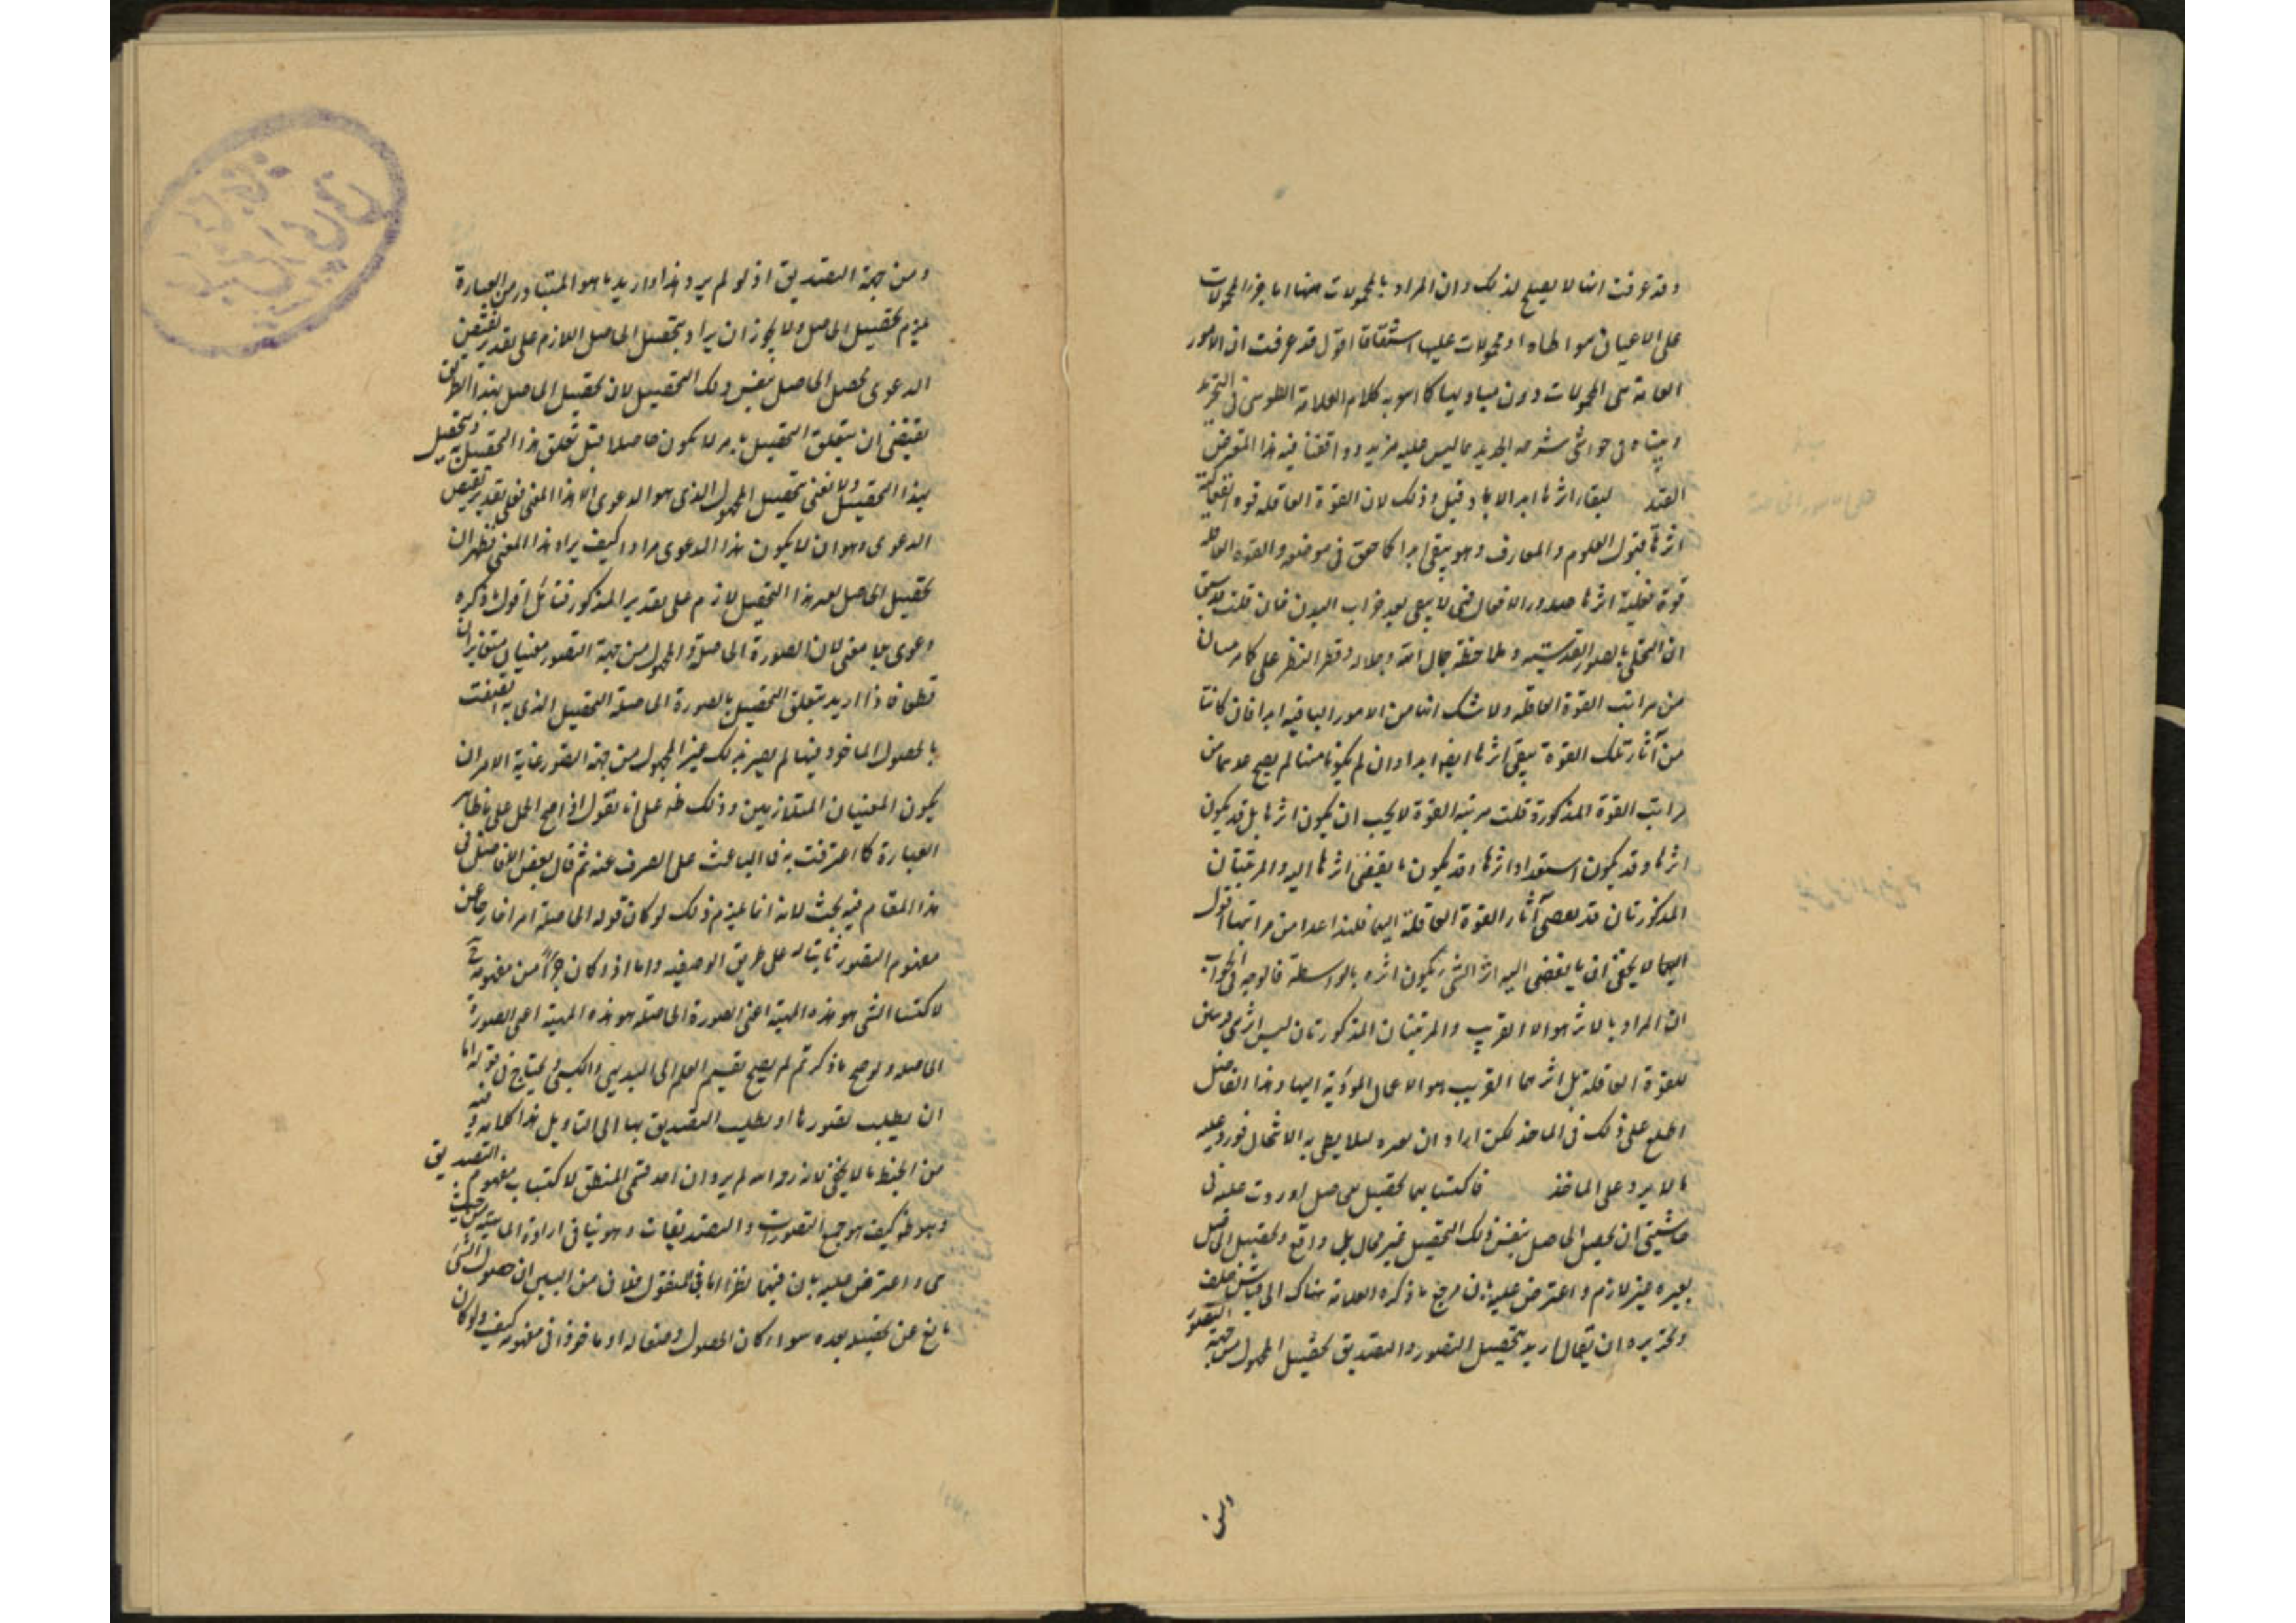 وقد عرفت انها لا يصلح لذلك وان المراد بالمحمولات ههنا اما جزء المحمولات
على الاعيان مواطاه او محمولات عليها اشتقاقا اقول قد عرفت ان الامور
العامة هى المحمولات دون مباديها كما هو به كلام العلامة الطوسى فى التجريد
وبيناه فى حواشى شرحه الجديد مما ليس عليه مزيد ووافقنا فيه هذا المتعرض
لبقاء اثرها ابد الاباد قيل وذلك لان القوة العاقله قوه انفعالية
اثرها قبول العلوم والمعارف وهو يبقى ابدا كما حقق فى موضعه والقوه العامله
قوة فعلية اثرها صدور الافعال فهى لا يبقى بعد خراب البدن فان قلت قد سبق
ان التحلى بالصور القدسيه وملاحظة جمال الله وجلاله وقصر النظر على كماله مرتبتان
من مراتب القوة العاقله ولا شك انها من الامور الباقيه ابدا فان كانتا
من آثار تلك القوة يبقى اثرها ايضا ابدا وان لم يكونا منها لم يصح عدهما من
مراتب القوة المذكورة قلت مرتبة القوة لا يجب ان يكون اثرها بل قد يكون
اثرها وقد يكون استعداد اثرها وقد يكون ما يفضى اثرها اليه والمرتبتان
المذكورتان قد يفضى آثار القوة العاقلة اليهما فلهذا عدا من مراتبها اقول
لا يخفى ان ما يفضى اليه اثر الشئ يكون اثره بالواسطة فالوجه فى الجواب
ان المراد بالاثر هو الاثر القريب والمرتبتان المذكورتان ليس اثرين قريبين
للقوة العاقلة بل اثرهما القريب هو الاعمال المؤدية اليها وهذا الفاضل
اطلع على ذلك فى الماخذ لكن اراد ان يغيره لئلا يطلع به الانتحال فورد عليه
ما لا يرد على الماخذ فاكتسابهما تحصيل للحاصل اوردت عليه فى
حاشيتى ان تحصيل الحاصل بنفس ذلك التحصيل غير محال بل واقع وتحصيل الحاصل
بغيره غير لازم واعترض عليه بان مرجع ما ذكره العلامة هناك الى قياس خلف
وتحريره ان يقال اريد بتحصيل التصور والتصديق تحصيل المجهول من جهة التصور
ومن جهة التصديق اذ لو لم يرد هذا واريد ما هو المتبادر من العبارة
يلزم تحصيل الحاصل ولا يجوز ان يراد بتحصيل الحاصل اللازم على تقدير نقيض
الدعوى تحصيل الحاصل بنفس ذلك التحصيل لان تحصيل الحاصل بهذا الطريق
يقتضى ان يتعلق التحصيل بامر لا يكون حاصلا قبل تعلق هذا التحصيل به
بهذا التحصيل ولا نعنى بتحصيل المجهول الذى هو الدعوى الا هذا المعنى فعلى تقدير نقيض
الدعوى وهو ان لا يكون هذا الدعوى مرادا كيف يراد هذا المعنى فظهر ان
تحصيل الحاصل بغير هذا التحصيل لازم على تقدير المذكور فتامل اقول ما ذكره
دعوى بلا معنى لان الصورة الحاصلة والمجهول من جهة التصور معنيان متغايران
قطعا فاذا اريد بتعلق التحصيل بالصورة الحاصلة التحصيل الذى به اتصفت
بالحصول الماخوذ فيها لم يصر بذلك عين المجهول من جهة التصور غاية الامر ان
يكون المعنيان المتلازمين وذلك ظه على انا نقول اذا صح الحمل على ظاهر
العبارة كما اعترفت به فما الباعث على الصرف عنه ثم قال بعض الافاضل فى
هذا المقام فيه بحث لانه انما يلزم ذلك لو كان قوله الحاصلة امرا خارجا عن
مفهوم التصور ثابتا له على طريق الوصفيه واما اذا كان جزأ من مفهومه
لاكتساب الشئ هو هذه الهيئة اعنى الصورة الحاصلة هو هذه الهيئة اعنى الصورة
الحاصلة ولو صح ما ذكرتم لم يصح تقسيم العلم الى البديهى والكسبى ويحتاج فى قوله اما
ان يطلب تصورها او يطلب التصديق بها الى التاويل هذا كلامه وفيه
من الخبط ما لا يخفى لانه رحمه الله لم يرد ان احد قسمى المنطق لاكتساب مفهوم التصديق
وهو ظ كيف هو جميع التصورات والتصديقات وهو ينافى ارادة الماهية من حيث
هى واعترض عليه بان فيهما نظرا اما فى المنقول فلان من البين ان حصول الشئ
مانع عن تحصيله بعده سواء كان الحصول وصفا له او ماخوذا فى مفهومه كيف ولو كان
ومن